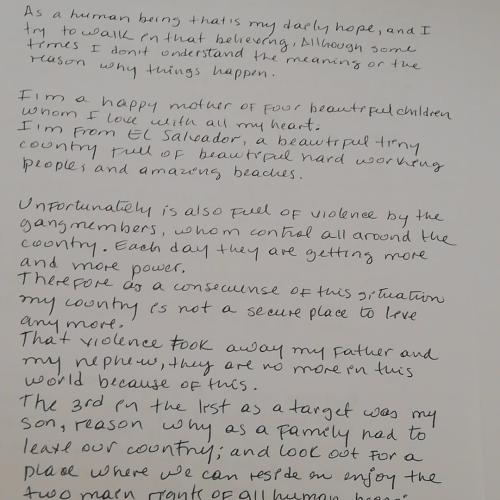 As a human being that is my daely hope, and I
try to walk in that believing, Although some
times I don't understand the meaning or the
reason why things happen.
I'im a happy mother of four beautiful children
whom I love with all my heart.
I'im from El Salvador, a beautiful tiny
country full of beautiful hard working
people, and amazing beaches.
Unfortunately is also fuel of violence by the
gangmembers, whom control all around the
country. Each day they are getting more
and more power.
Therefore as a consecuense of this situation
my country is not a secure place to live
any more.
That violence took away my father and
my nephew, they are no more in this
world because of this.
The 3rd in the list as a target was my
son, reason why as a family had to
leave our country; and look out for a
place where we can reside en enjoy the
two main rights of all human